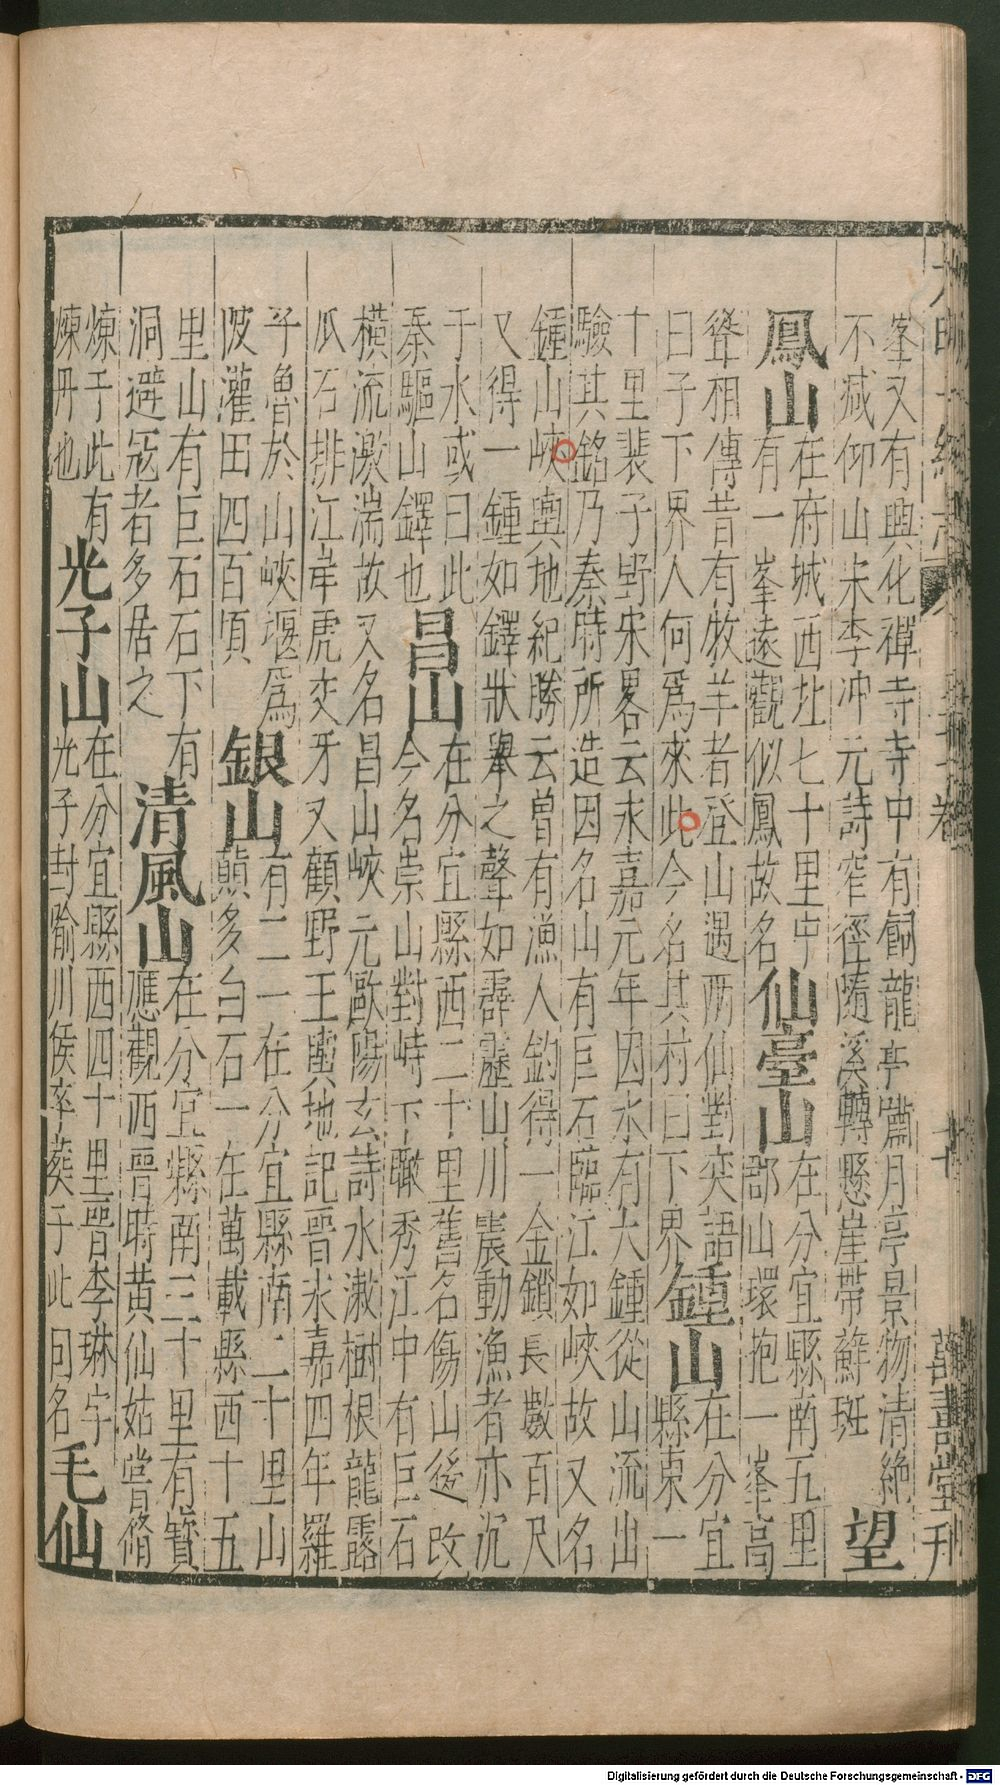 峯又有興化禪寺寺中有飼龍亭躡月亭景物清絶
不减仰山宋李冲元詩窄徑隨溪轉懸崖帶蘚斑
望
鳳山
在府城西北七十里中
有一峯遠觀似鳳故名
仙臺山
在分宜縣南五里
郡山環抱一峯高
聳相傳昔有牧羊者登山遇兩仙對奕語
曰子下界人何爲來此今名其村曰下界
鍾山
在分宜
縣東一
十里裴子野宋畧云永嘉元年因水有大鍾從山流出
驗其銘乃秦時所造因名山有巨石臨江如峽故又名
鍾山峽輿地紀勝云曽有漁人釣得一金鎖長數百尺
又得一鍾如鐸狀舉之聲如霹靂山川震動漁者亦沉
于水或曰此
秦驅山鐸也
昌山
在分宜縣西二十里舊名傷山後改
今名崇山對峙下瞰秀江中有巨石
橫流激湍故又名昌山峽元歐陽玄詩水漱樹根龍露
瓜石排江岸虎交牙又顧野王輿地記晉永嘉四年羅
子魯於山峽堰爲
陂灌田四百頃
銀山
有二一在分宜縣南二十里山
顛多白石一在萬載縣西十五
里山有巨石石下有
洞避冦者多居之
清風山
在分宜縣南三十里有寳
應觀西晋時黃仙姑甞脩
煉于此有
煉丹也
光子山
在分宜縣西四十里晋李琳字
光子封喻川侯卒葬于此因名
毛仙
萬壽堂刋
Digitalisierung gefördert durch die Deutsche Forschungsgemeinschaft - DFG